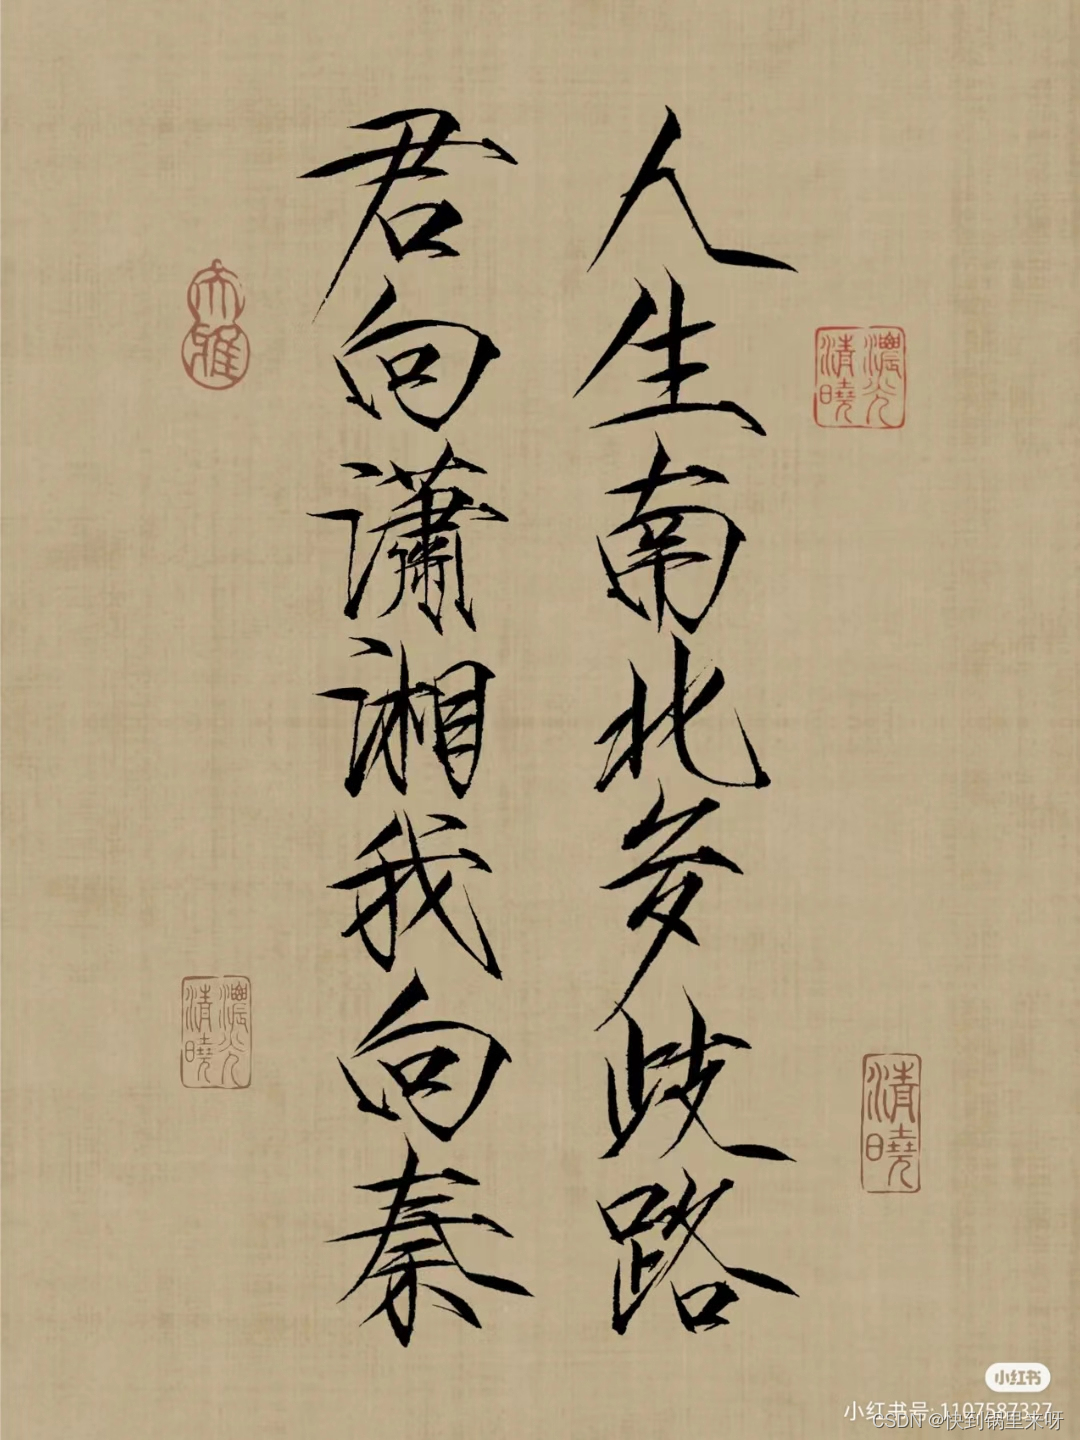 人生南北多歧路
君向潇湘我向秦
大雅
濃光
清曉
濃光
清曉
清曉
小红书
小红书号: 1107587327
CSDN @快到锅里来呀